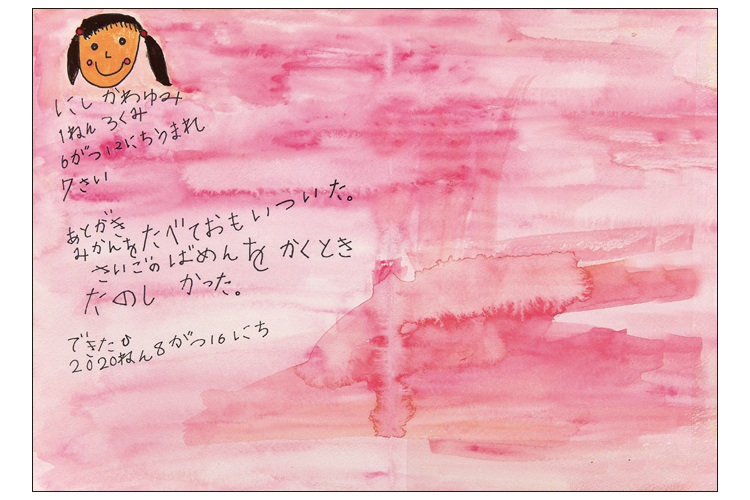 にしかわゆみ
1ねん ろくみ
6がつ12にちうまれ
7さい
あとがき
みかんをたべておもいついた。
さいごのばめんをかくとき
たのしかった。
できたひ
2020ねん8がつ16にち